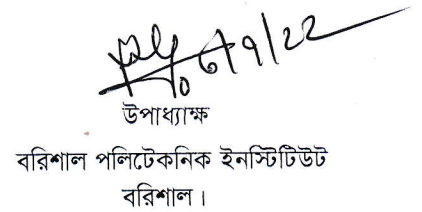 উপাধ্যাক্ষ
বরিশাল পলিটেকনিক ইনস্টিটিউট
বরিশাল।